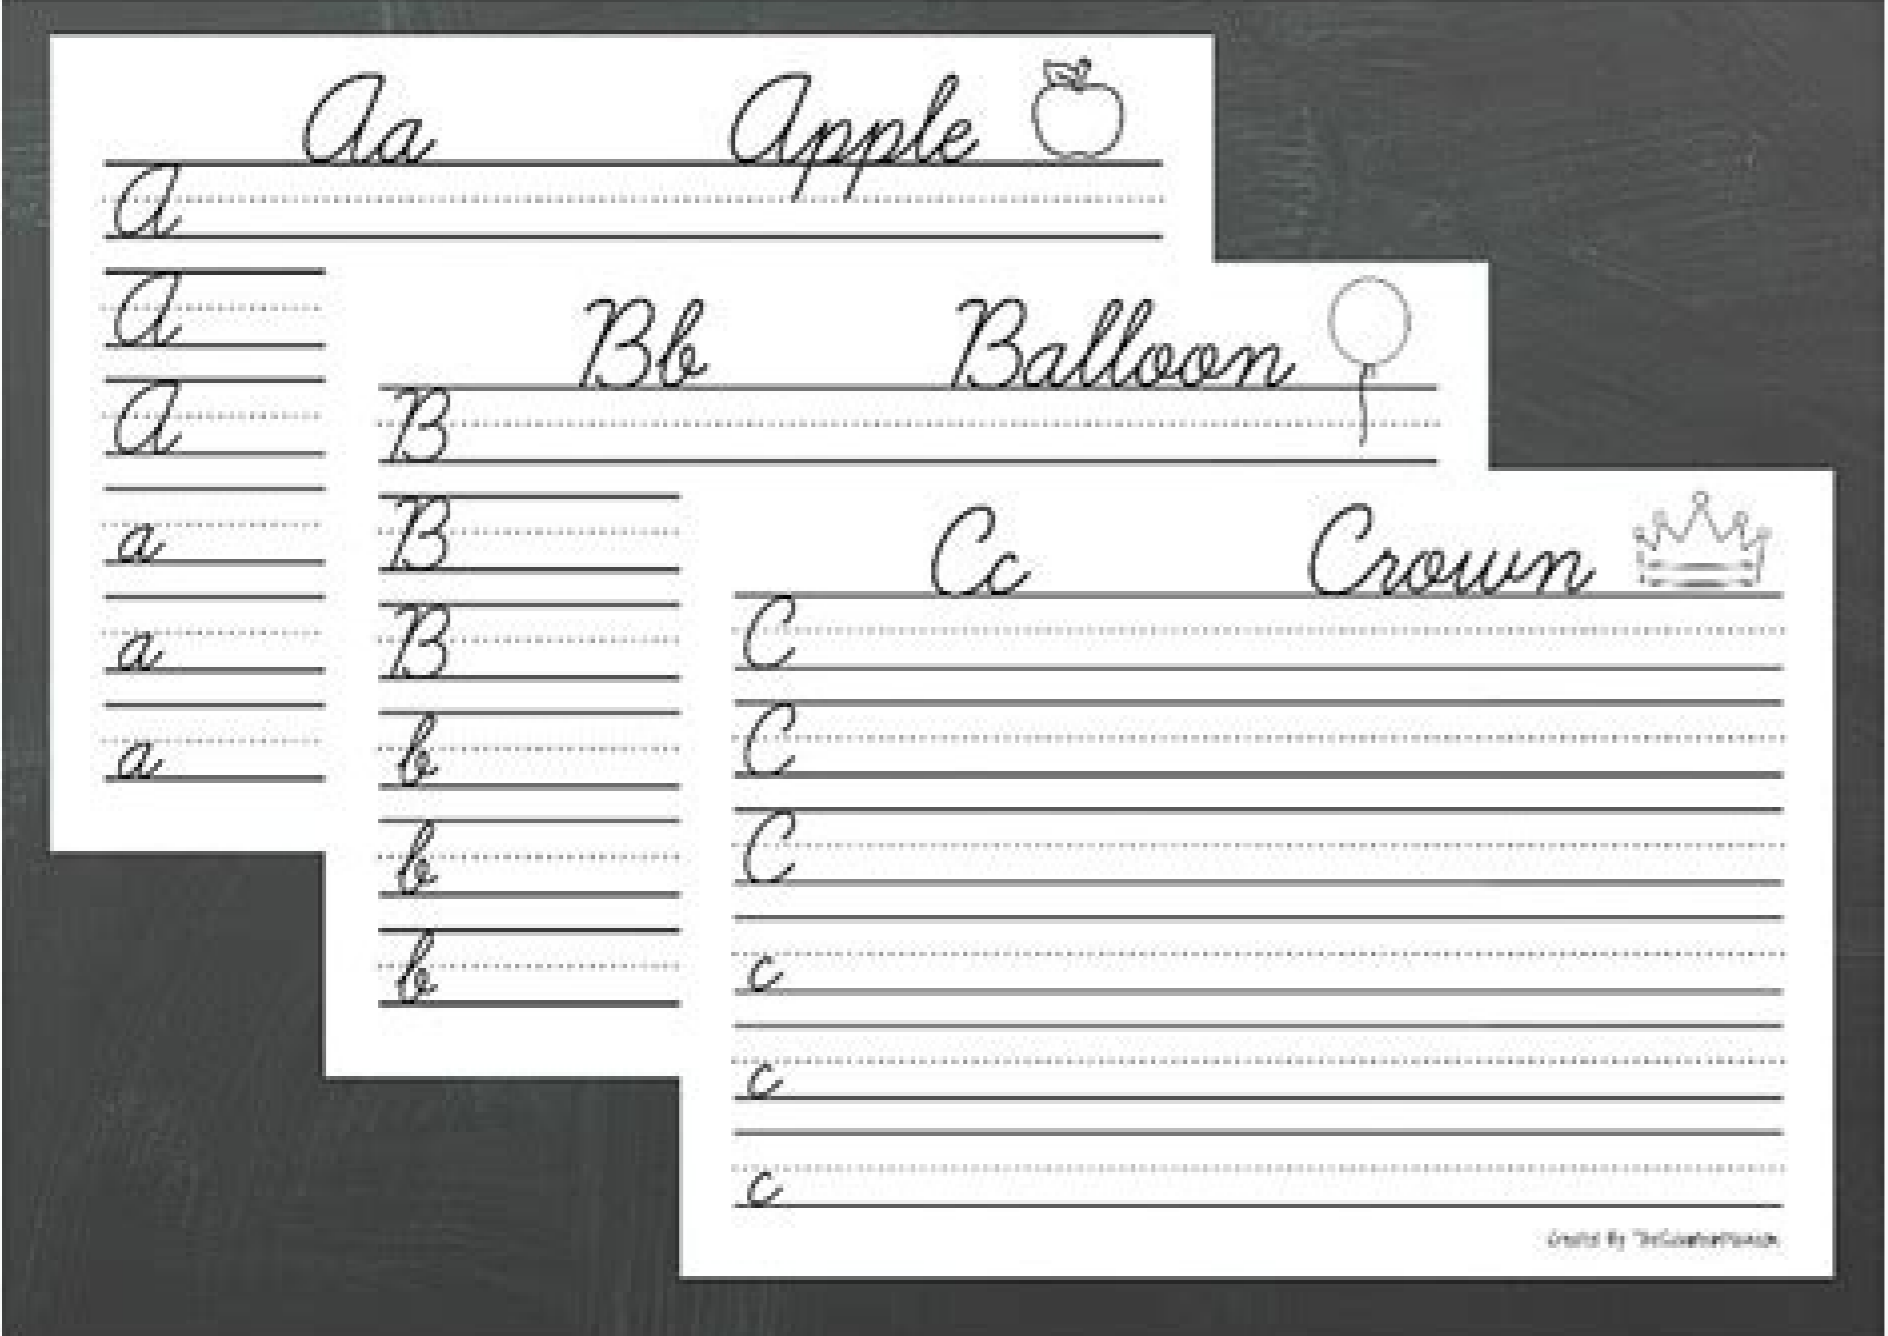 Aa Apple
A
A
A
a
a
a
Bb Balloon
B
B
B
b
b
b
Cc Crown
C
C
C
c
c
c
Created By